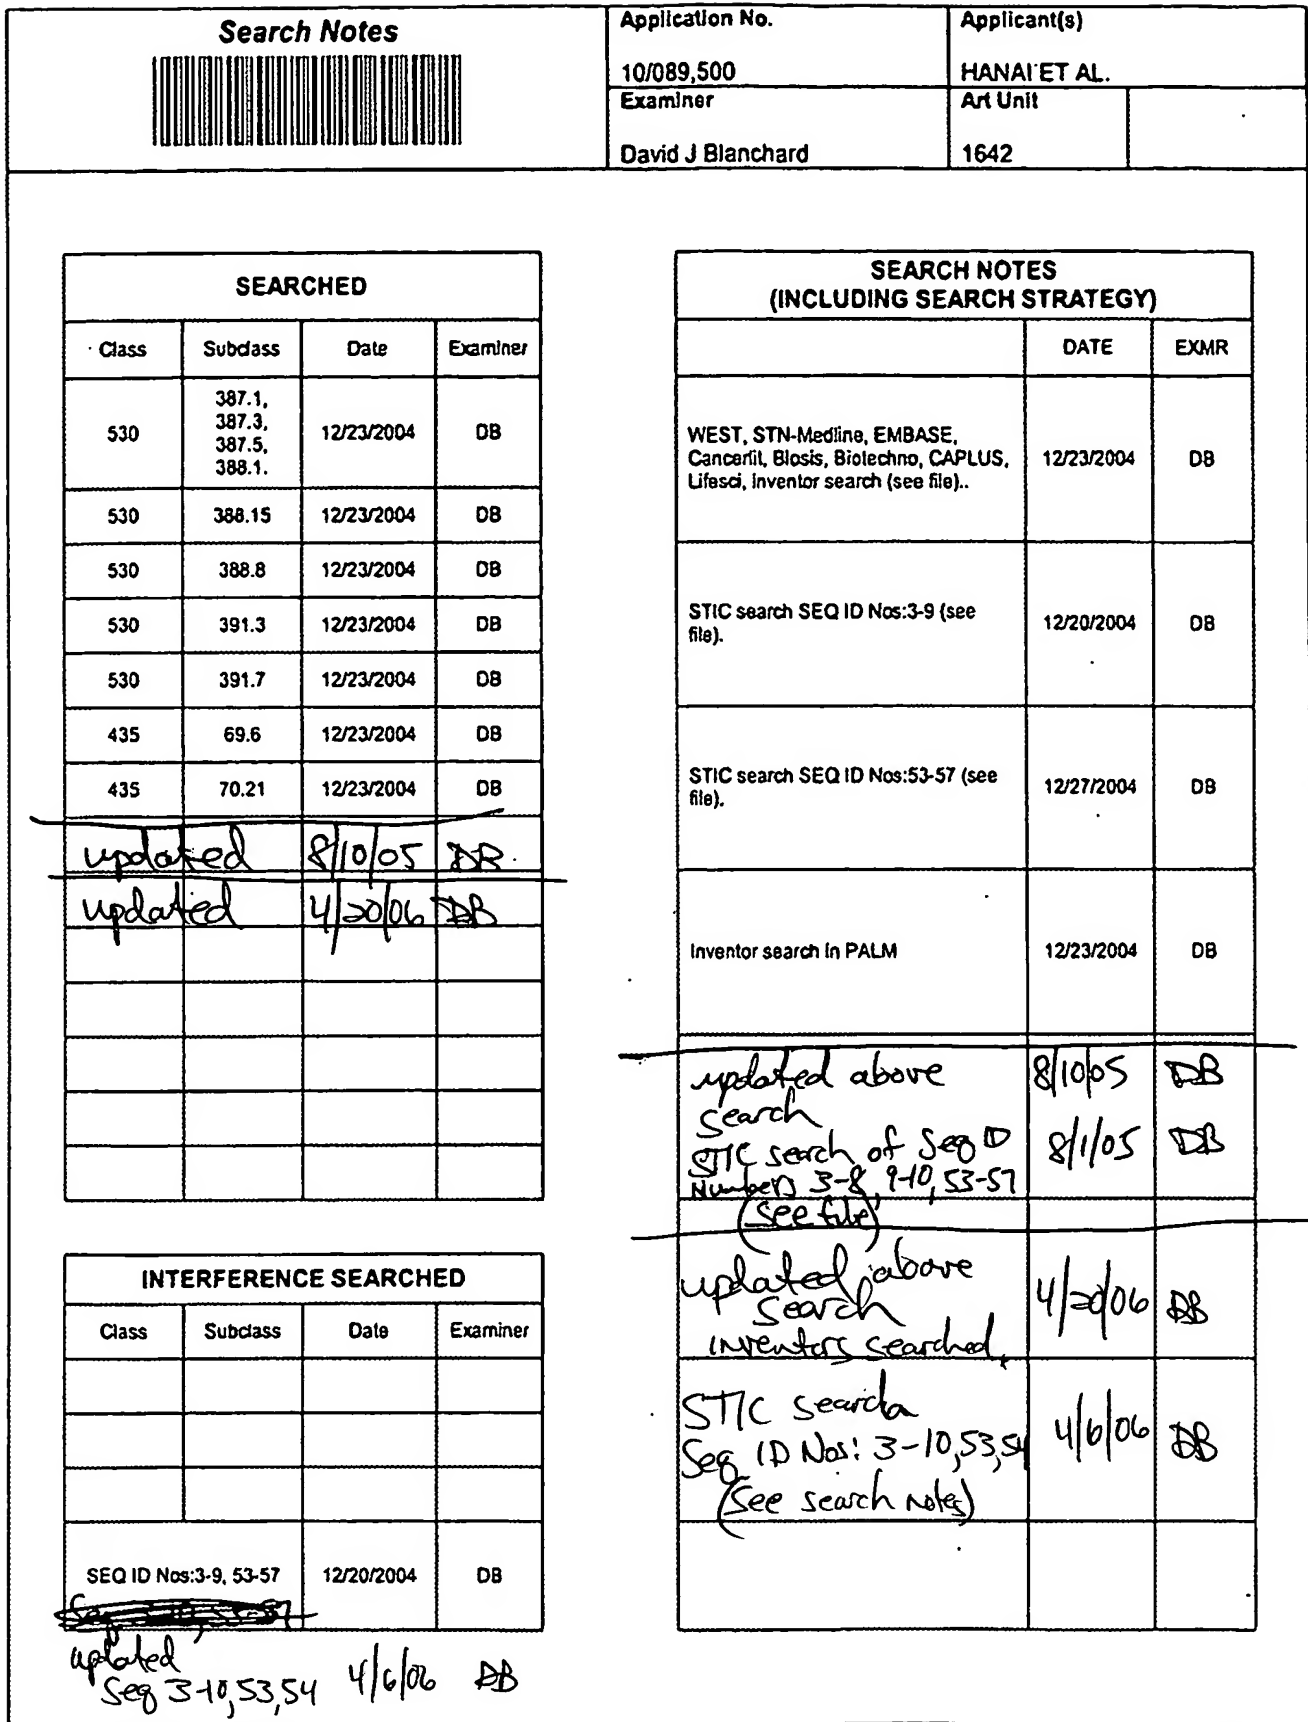 Search Notes
Application No.
10/089,500
Applicant(s)
HANAI ET AL.
Examiner
David J Blanchard
Art Unit
1642
SEARCHED
Class Subclass Date Examiner
530 387.1, 387.3, 387.5, 388.1. 12/23/2004 DB
530 388.15 12/23/2004 DB
530 388.8 12/23/2004 DB
530 391.3 12/23/2004 DB
530 391.7 12/23/2004 DB
435 69.6 12/23/2004 DB
435 70.21 12/23/2004 DB
updated 8/10/05 DB
updated 4/20/06 DB
INTERFERENCE SEARCHED
Class Subclass Date Examiner
SEQ ID Nos:3-9, 53-57 12/20/2004 DB
updated
Seq 3-10,53,54 4/6/06 DB
SEARCH NOTES
(INCLUDING SEARCH STRATEGY)
DATE EXMR
WEST, STN-Medline, EMBASE,
Cancerlit, Biosis, Biotechno, CAPLUS,
Lifesci, Inventor search (see file).. 12/23/2004 DB
STIC search SEQ ID Nos:3-9 (see
file). 12/20/2004 DB
STIC search SEQ ID Nos:53-57 (see
file). 12/27/2004 DB
Inventor search in PALM 12/23/2004 DB
updated above 8/10/05 DB
search
STIC search of Seq ID 8/1/05 DB
Numbers 3-8, 9-10, 53-57
(see file)
updated above
search 4/20/06 DB
inventors searched.
STIC search
Seq ID Nos: 3-10,53,54 4/6/06 DB
(see search notes)